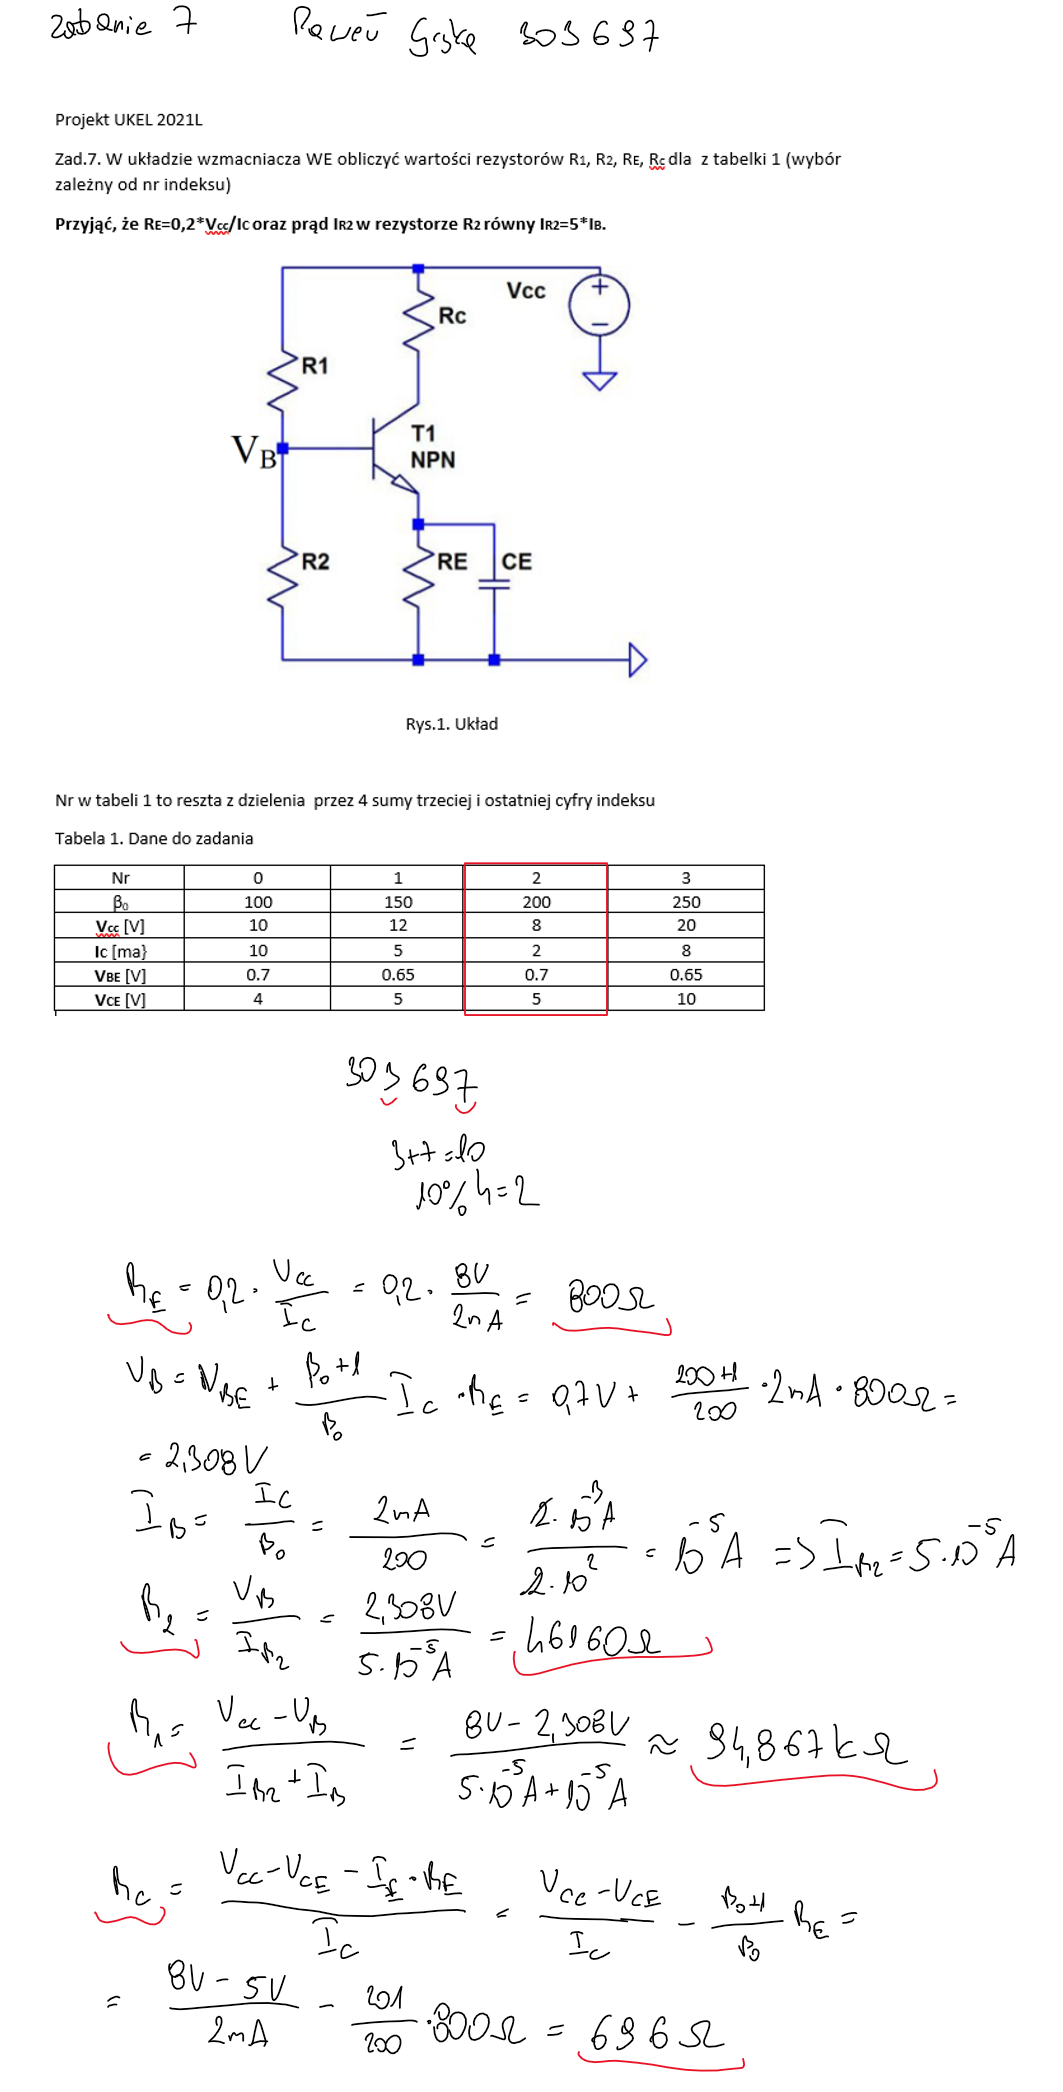 zadanie 7 Paweł Górka 303697
Projekt UKEL 2021L
Zad.7. W układzie wzmacniacza WE obliczyć wartości rezystorów R1, R2, RE, Rc dla z tabelki 1 (wybór
zależny od nr indeksu)
Przyjąć, że RE=0,2*Vcc/Ic oraz prąd IR2 w rezystorze R2 równy IR2=5*IB.
Vcc
Rc
R1
T1
VB
NPN
R2 RE CE
Rys.1. Układ
Nr w tabeli 1 to reszta z dzielenia przez 4 sumy trzeciej i ostatniej cyfry indeksu
Tabela 1. Dane do zadania
Nr 0 1 2 3
β0 100 150 200 250
Vcc [V] 10 12 8 20
Ic [ma} 10 5 2 8
VBE [V] 0.7 0.65 0.7 0.65
VCE [V] 4 5 5 10
303697
3+7=10
10%4=2
RE = 0,2 · Vcc/Ic = 0,2 · 8V/2mA = 800Ω
VB = VBE + (β0+1)/β0 Ic · RE = 0,7V + (200+1)/200 · 2mA · 800Ω =
= 2,308V
IB = Ic/β0 = 2mA/200 = 2·10^-3A/2·10^2 = 10^-5A => IR2 = 5·10^-5A
R2 = VB/IR2 = 2,308V/5·10^-5A = 46160Ω
R1 = (Vcc-VB)/(IR2+IB) = (8V-2,308V)/(5·10^-5A+10^-5A) ≈ 94,867kΩ
Rc = (Vcc-VCE-IE·RE)/Ic = (Vcc-VCE)/Ic - (β0+1)/β0 RE =
= (8V-5V)/2mA - 201/200 · 800Ω = 696Ω